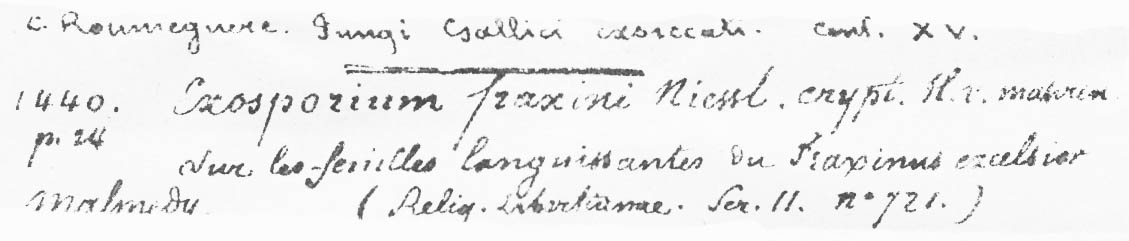 C. Roumeguere. Fungi Gallici exsiccati. Cent. XV.
1440. Exosporium fraxini Niessl. crypt. Fl. v. mahren
p. 24
Sur les feuilles languissantes du Fraxinus excelsior
Malmedy. (Reliq. Libertianae. Ser. II. n° 721.)